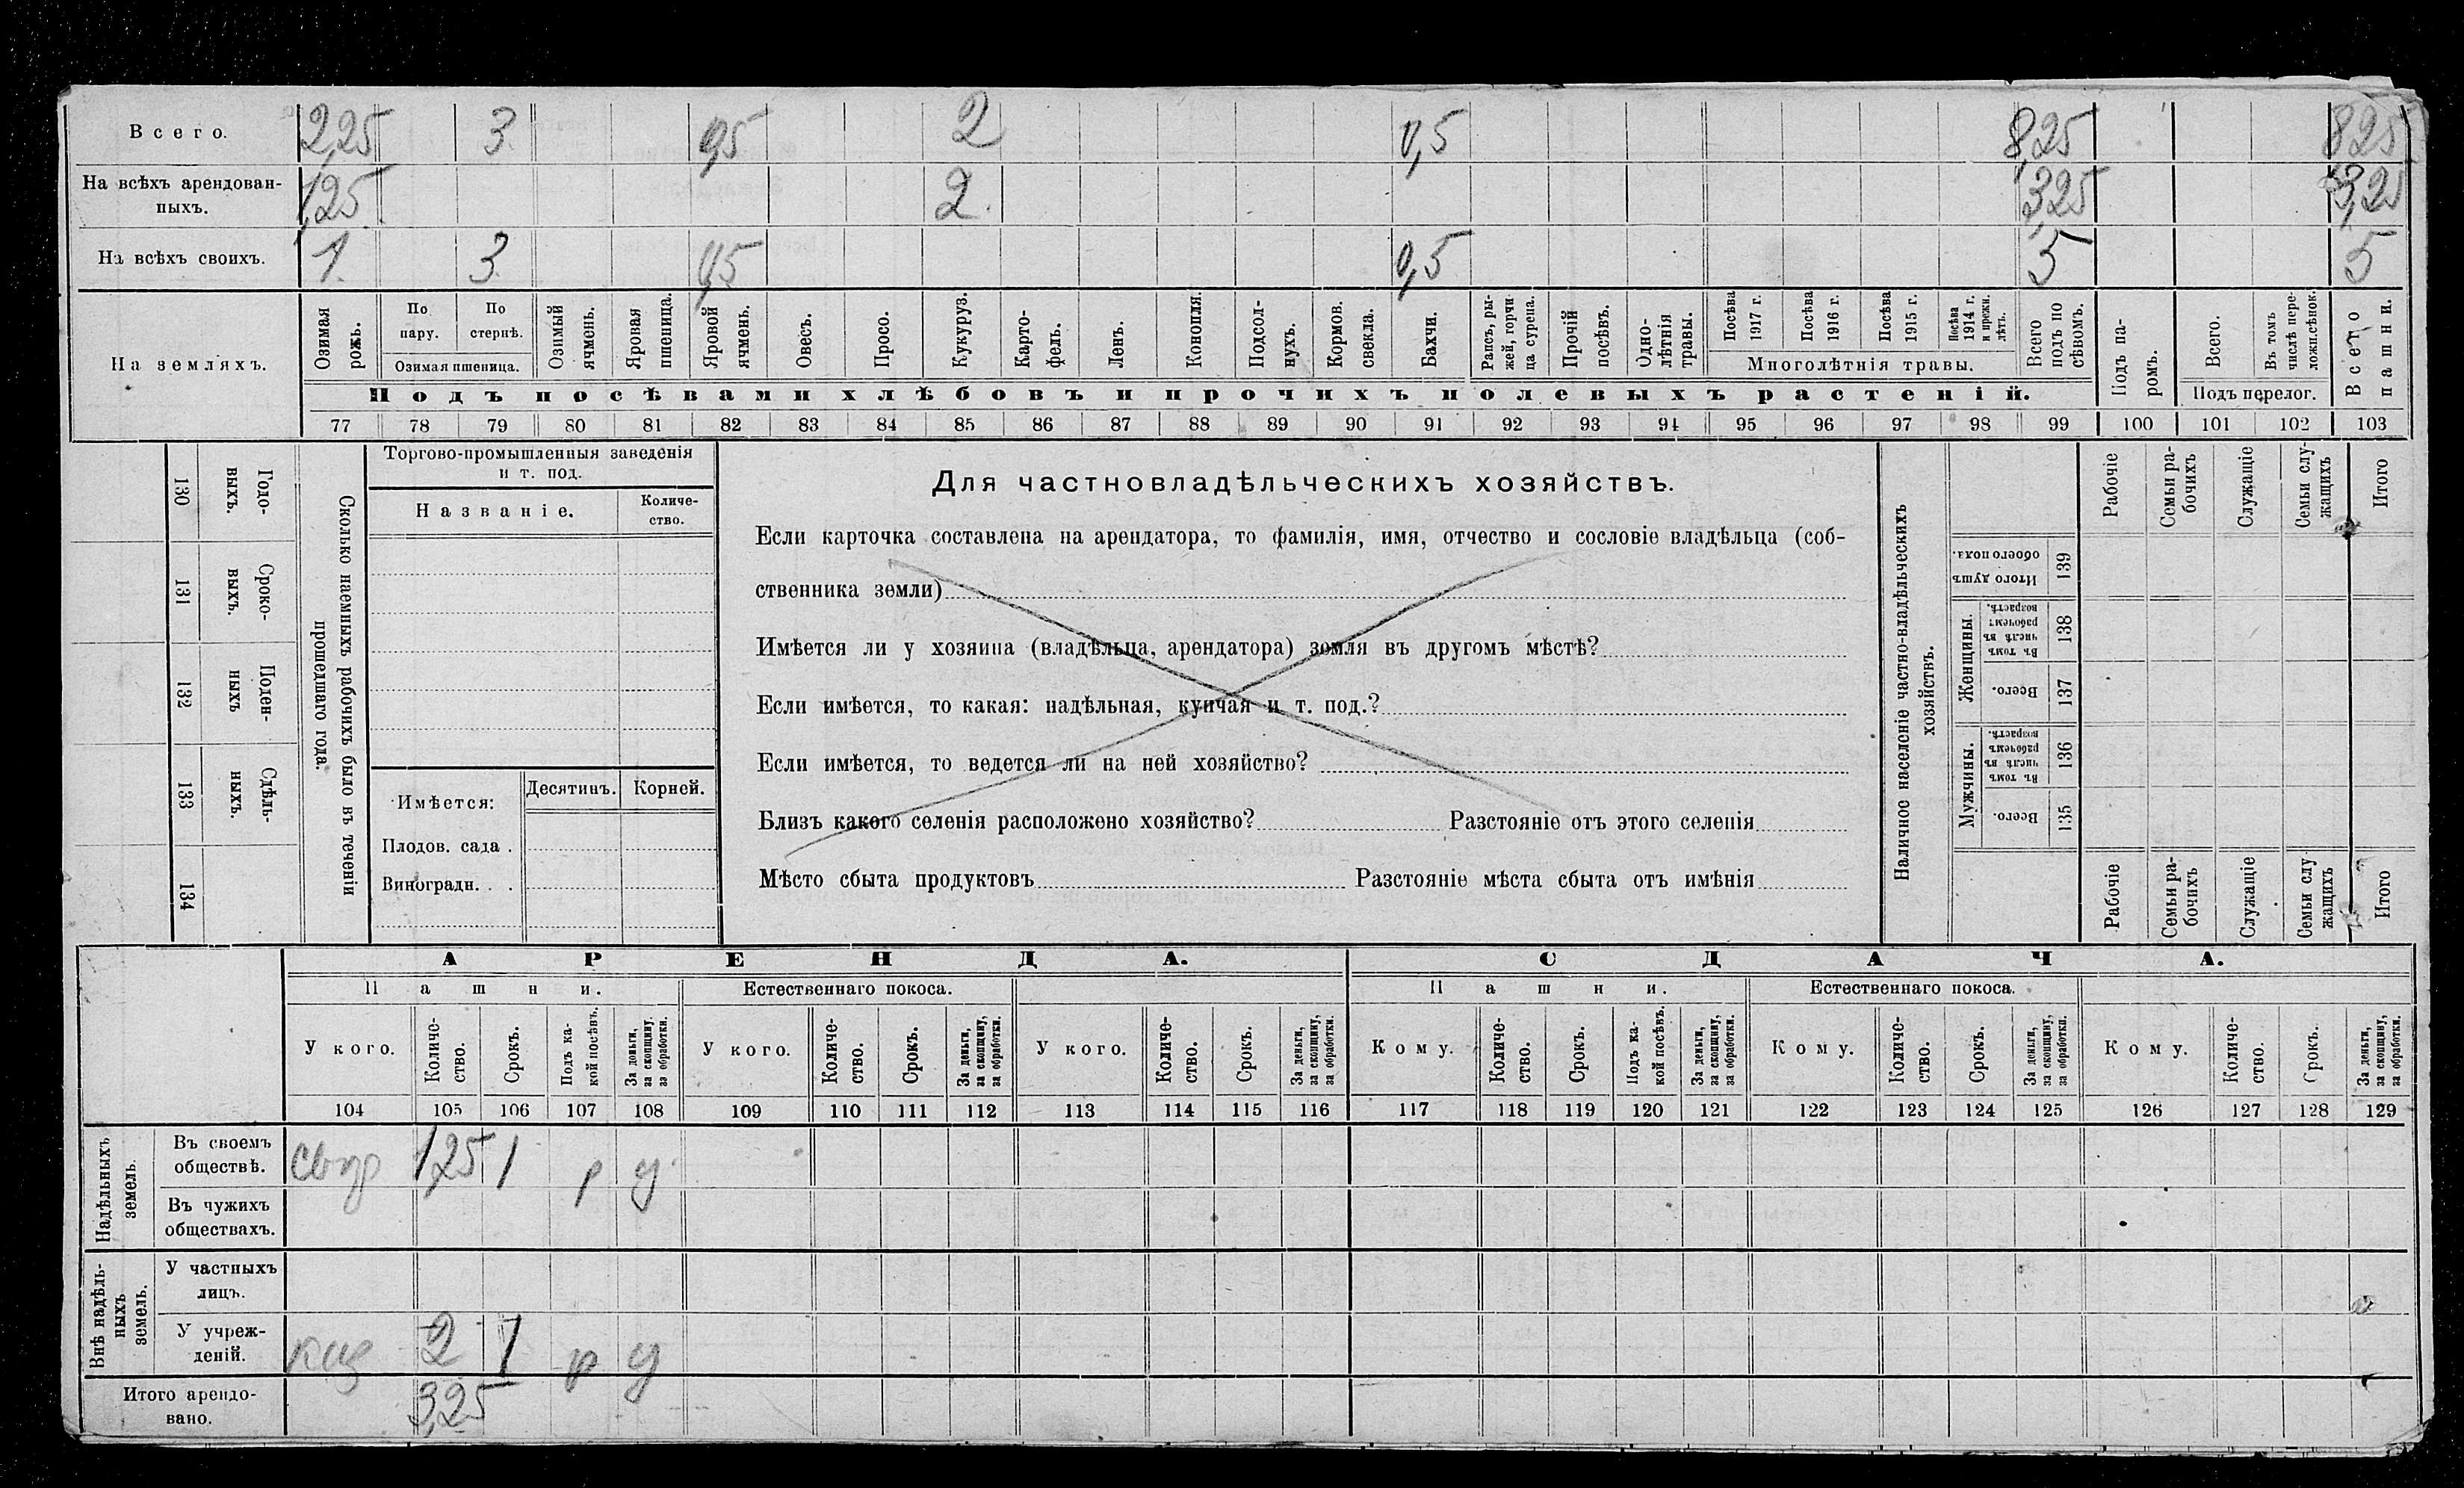 Всего. 2,25 3 0,5 2 0,5 8,25 8,25
На всѣхъ арендован-
ныхъ. 1,25 2 3,25 3,25
На всѣхъ своихъ. 1 3 0,5 0,5 5 5
На земляхъ.
Озимая рожь.
По пару.
По стернѣ.
Озимая пшеница.
Озимый ячмень.
Яровая пшеница.
Яровой ячмень.
Овесъ.
Просо.
Кукуруз.
Карто-
фель.
Ленъ.
Конопля.
Подсол-
нухъ.
Кормов.
свекла.
Бахчи.
Рапсъ, ры-
жей, горчи-
ца сурепа.
Прочій
посѣвъ.
Одно-
лѣтнія
травы.
Посѣва
1917 г.
Посѣва
1916 г.
Посѣва
1915 г.
Посѣва
1914 г.
и прежн.
лѣтъ.
Многолѣтнія травы.
Всего
подъ по
сѣвомъ.
Подъ посѣвами хлѣбовъ и прочихъ полевыхъ растеній.
Подъ па-
ромъ.
Всего.
Въ томъ
числѣ пере-
ложн. сѣнок.
Подъ перелог.
Всего
пашни.
77 78 79 80 81 82 83 84 85 86 87 88 89 90 91 92 93 94 95 96 97 98 99 100 101 102 103
130 Годо-
выхъ.
131 Сроко-
выхъ.
132 Поден-
ныхъ
133 Сдѣль-
ныхъ.
134
Сколько наемныхъ рабочихъ было въ теченіи
прошедшаго года.
Торгово-промышленныя заведенія
и т. под.
Названіе.
Количе-
ство.
Имѣется: Десятинъ. Корней.
Плодов. сада .
Виноградн. . .
Для частновладѣльческихъ хозяйствъ.
Если карточка составлена на арендатора, то фамилія, имя, отчество и сословіе владѣльца (соб-
ственника земли)
Имѣется ли у хозяина (владѣльца, арендатора) земля въ другомъ мѣстѣ?
Если имѣется, то какая: надѣльная, купчая и т. под.?
Если имѣется, то ведется ли на ней хозяйство?
Близъ какого селенія расположено хозяйство? Разстояніе отъ этого селенія
Мѣсто сбыта продуктовъ Разстояніе мѣста сбыта отъ имѣнія
Наличное населеніе частно-владѣльческихъ
хозяйствъ.
Рабочіе
Семьи ра-
бочихъ
Служащіе
Семьи слу-
жащихъ
Итого
Итого душъ
обоего пола.
139
Женщины.
Въ томъ
числѣ въ
рабочемъ
возрастѣ.
138
Всего.
137
Мужчины.
Въ томъ
числѣ въ
рабочемъ
возрастѣ.
136
Всего.
135
Рабочіе
Семьи ра-
бочихъ
Служащіе
Семьи слу-
жащихъ
Итого
АРЕНДА. СДАЧА.
Пашни. Естественнаго покоса. Пашни. Естественнаго покоса.
У кого.
Количе-
ство.
Срокъ.
Подъ ка-
кой посѣвъ.
За деньги,
за скопщину,
за обработки.
У кого.
Количе-
ство.
Срокъ.
За деньги,
за скопщину,
за обработки.
У кого.
Количе-
ство.
Срокъ.
За деньги,
за скопщину,
за обработки.
Кому.
Количе-
ство.
Срокъ.
Подъ ка-
кой посѣвъ.
За деньги,
за скопщину,
за обработки.
Кому.
Количе-
ство.
Срокъ.
За деньги,
за скопщину,
за обработки.
Кому.
Количе-
ство.
Срокъ.
За деньги,
за скопщину,
за обработки.
104 105 106 107 108 109 110 111 112 113 114 115 116 117 118 119 120 121 122 123 124 125 126 127 128 129
Надѣльныхъ
земель.
Въ своемъ
обществѣ. 1,25 1 р
Въ чужихъ
обществахъ.
Внѣ надѣль-
ныхъ
земель.
У частныхъ
лицъ.
У учреж-
деній. 2 1 р
Итого арендо-
вано. 3,25